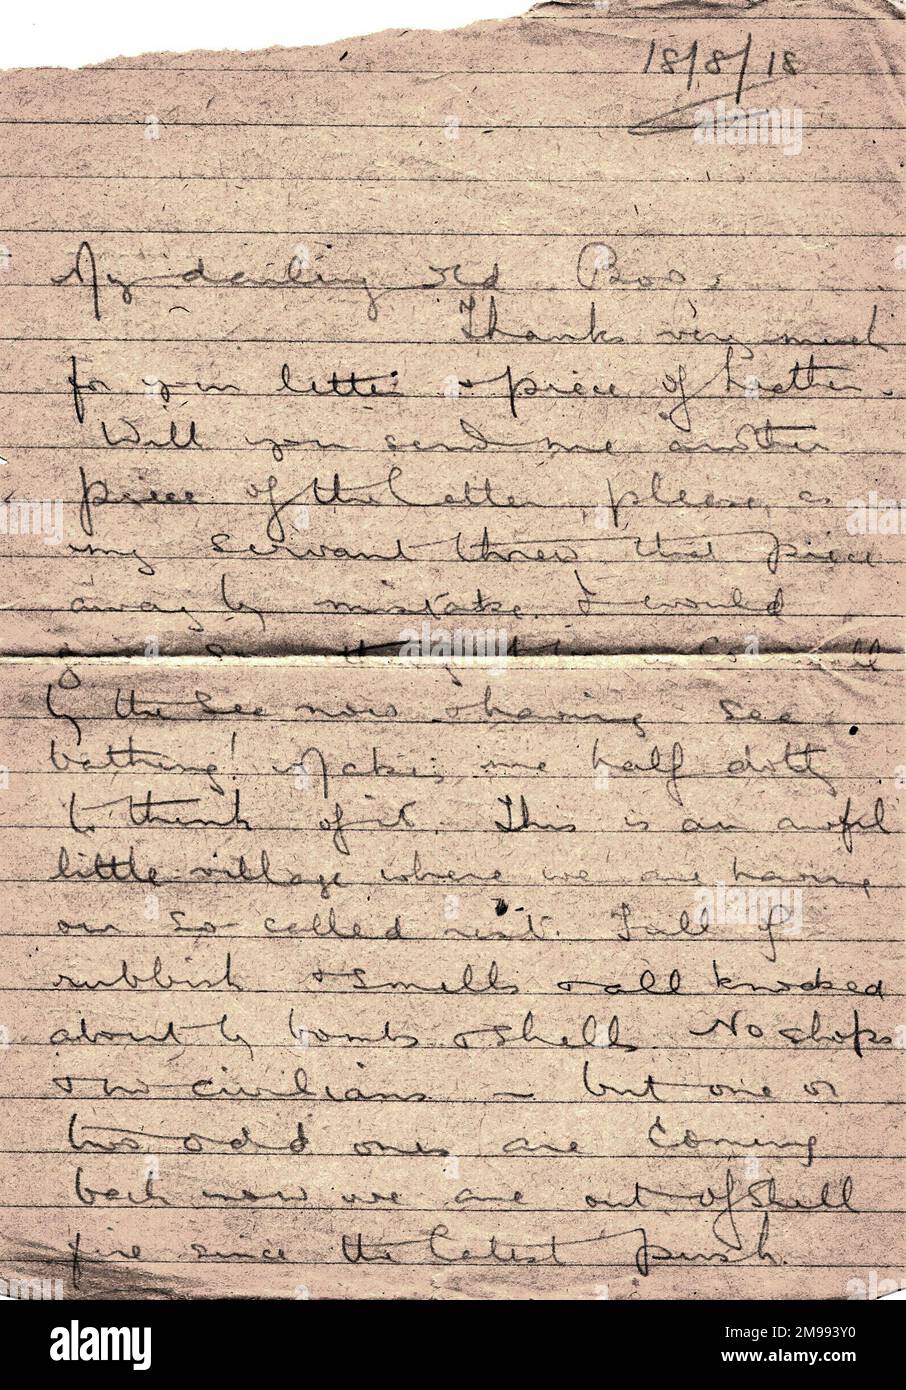 18/8/18
My darling old Boo,
Thanks very much
for your letter & piece of heather.
Will you send me another
piece of the latter, please, as
my servant threw that piece
away by mistake. I would
give to be in Cornwall
by the sea now & having sea
bathing! Makes me half dotty
to think of it. This is an awful
little village where we are having
our so-called rest. Full of
rubbish & smells & all knocked
about by bombs & shells. No shops
& no civilians – but one or
two odd ones are coming
back now we are out of shell
fire since the latest push.
alamy
Image ID: 2M993Y0
www.alamy.com